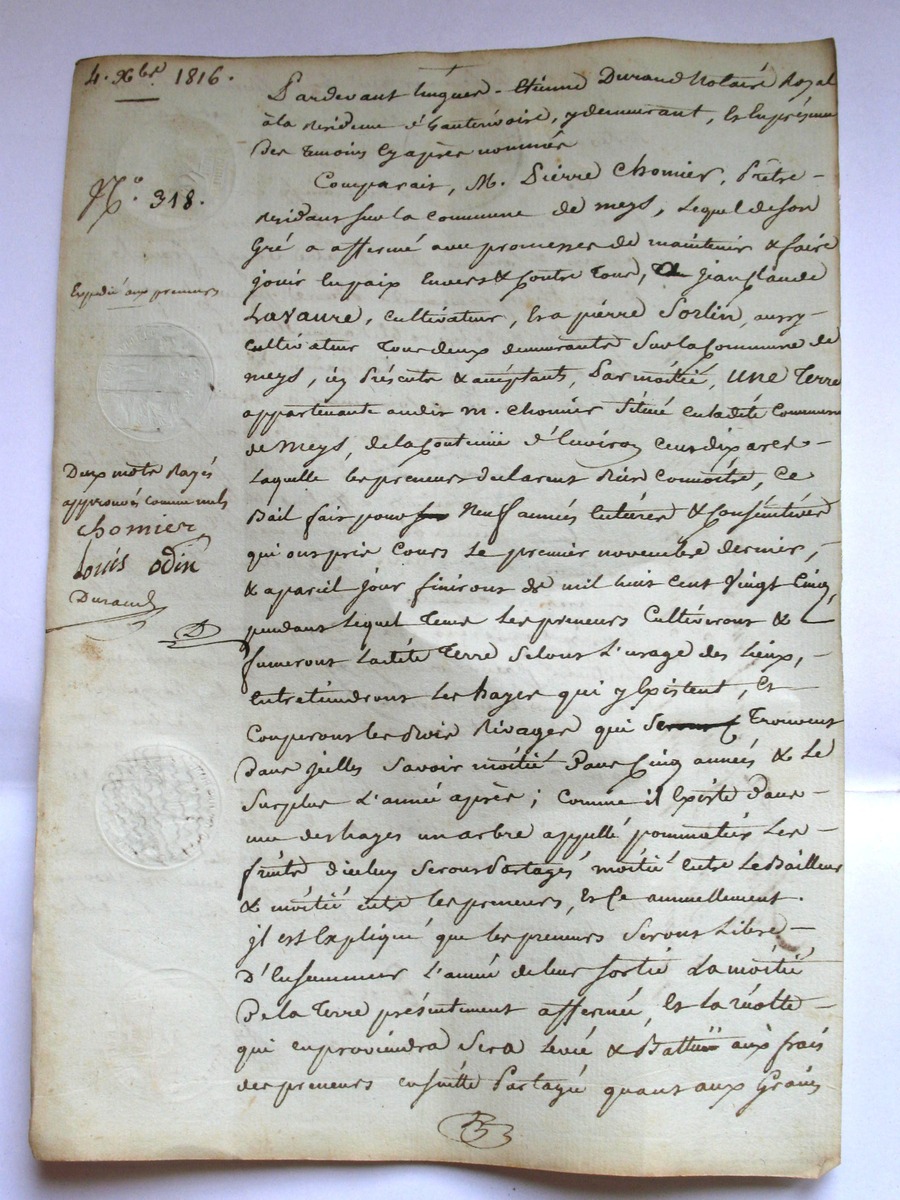 4. Xbre 1816.
N.o 318.
Expedié aux preneurs
Deux mots rayés
approuvés comme nuls
chomier
Louis odin
Durand
D
Pardevant Etienne Durand Notaire Royal
à la residence d', y demeurant, et en présence
des temoins cy après nommés
Comparait, M. Pierre Chomier, Prêtre
residant sur la commune de meys, Lequel de son
Gré a affermé avec promesses de maintenir & faire
jouir en paix envers & contre tous, a jean Claude
Lavaure, cultivateur, et a pierre Sorlin, aussy
cultivateur tous deux demeurants sur la Commune de
meys, icy présents & acceptants, Par moitié, une terre
appartenante audit m. chomier située en ladite Commune
de Meys, de la Contenue d'environ cent dix ares
Laquelle les preneurs declarent bien connoitre, Ce
Bail fait pour Neuf années entières & Consécutives
qui ont pris cours Le premier novembre dernier,
& a pareil jour finiront de mil huit cent vingt Cinq,
pendant lequel tems Les preneurs Cultiveront &
fumeront Ladite terre selons L'usage des Lieux,
Entretiendront Les hayes qui y Existent, et
Couperont les bois Rivages qui se trouvent
Dans icelles savoir moitié Dans Cinq années & Le
Surplus L'année après; Comme il Existe dans
une des hayes un arbre appellé pommatier Les
fruits d'icelui seront Partagés moitié entre Le Bailleur
& moitié entre les preneurs, et Ce annuellement.
jl est Expliqué que les preneurs seront Libre
D'Ensemencer L'année de leur sortie La moitié
De la terre présentement affermée, et La récolte
qui en proviendra sera Levée & Battue aux frais
des preneurs ensuitte Partagée quant aux Grains